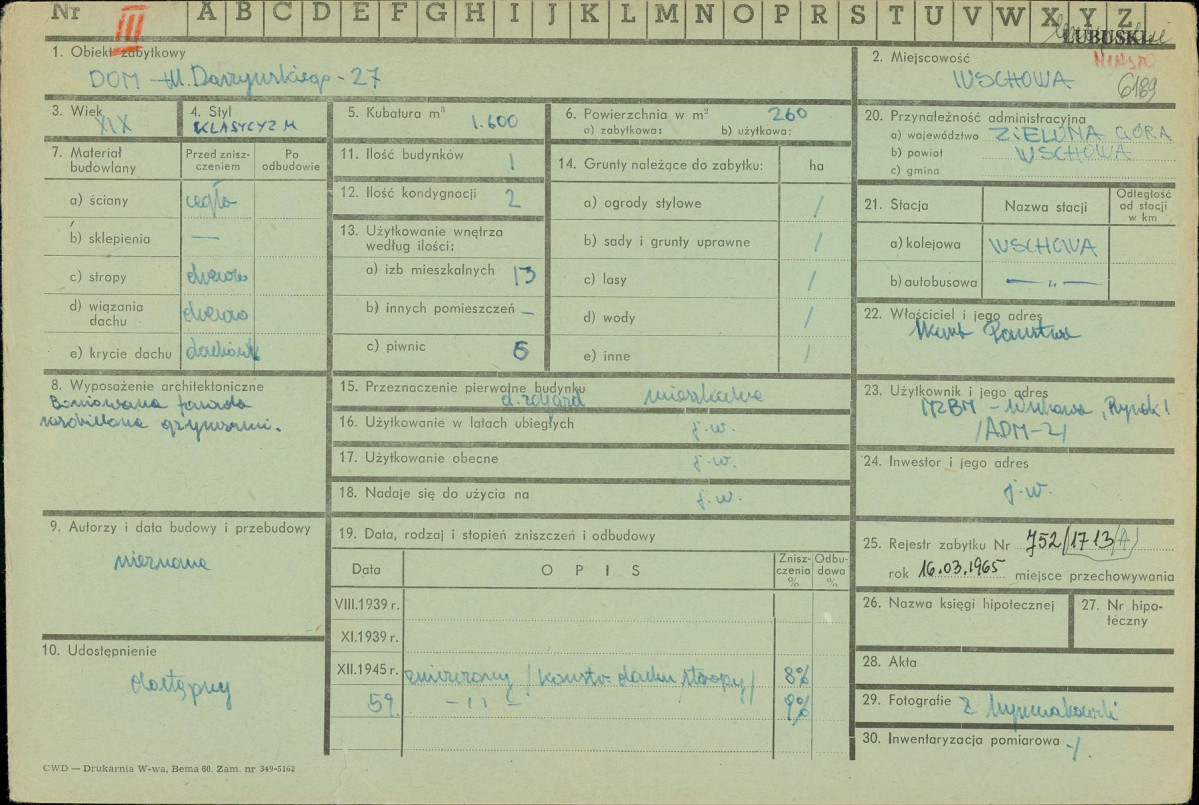 Nr III A B C D E F G H I J K L M N O P R S T U V W X Y Z
LUBUSKI
1. Obiekt zabytkowy
DOM - ul. Daszyńskiego - 27
2. Miejscowość
WSCHOWA
MIASTO
6189
3. Wiek
XIX
4. Styl
KLASYCYZM
5. Kubatura m³
1.600
6. Powierzchnia w m² 260
a) zabytkowa: b) użytkowa:
20. Przynależność administracyjna
a) województwo ZIELONA GÓRA
b) powiat WSCHOWA
c) gmina
7. Materiał budowlany
Przed zniszczeniem
Po odbudowie
a) ściany cegła
b) sklepienia —
c) stropy drewno
d) wiązania dachu drewno
e) krycie dachu dachówk
11. Ilość budynków 1
12. Ilość kondygnacji 2
13. Użytkowanie wnętrza
według ilości:
a) izb mieszkalnych 13
b) innych pomieszczeń –
c) piwnic 5
14. Grunty należące do zabytku: ha
a) ogrody stylowe /
b) sady i grunty uprawne /
c) lasy /
d) wody /
e) inne /
21. Stacja
Nazwa stacji
Odległość od stacji w km
a) kolejowa WSCHOWA
b) autobusowa — „ —
22. Właściciel i jego adres
Skarb Państwa
8. Wyposażenie architektoniczne
Boniowana fasada
rozdzielona gzymsami.
15. Przeznaczenie pierwotne budynku
mieszkalne
16. Użytkowanie w latach ubiegłych j.w.
17. Użytkowanie obecne j.w.
18. Nadaje się do użycia na j.w.
23. Użytkownik i jego adres
MZBM - Wschowa, Rynek 1
/ADM-2/
24. Inwestor i jego adres
j.w.
9. Autorzy i data budowy i przebudowy
nieznane
19. Data, rodzaj i stopień zniszczeń i odbudowy
Data
OPIS
Zniszczenia %
Odbudowa %
VIII.1939 r.
XI.1939 r.
XII.1945 r. zniszczony /konstr. dachu stropy/ 8%
59. – 11 – 9%
25. Rejestr zabytku Nr 752/1713/A/
rok 16.03.1965 miejsce przechowywania
26. Nazwa księgi hipotecznej
27. Nr hipoteczny
10. Udostępnienie
dostępny
28. Akta
29. Fotografie
30. Inwentaryzacja pomiarowa -/
CWD — Drukarnia W-wa, Bema 60. Zam. nr 349-5162